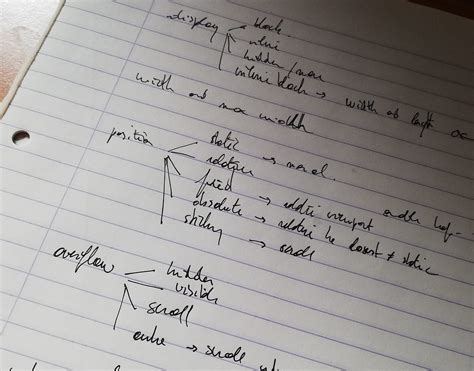 display block
inline
hidden / none
inline block → width at
width at max width
position static → normal.
relative
fixed → relative viewport
absolute → relative the closest ≠ static
sticky → scroll
overflow hidden
visible
scroll
→ scroll